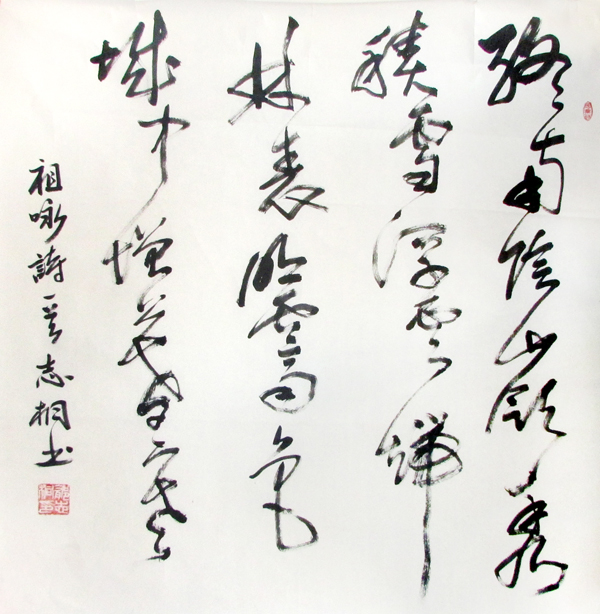 終南陰嶺秀
積雪浮雲端
林表明霽色
城中增暮寒
祖咏詩 志桐书